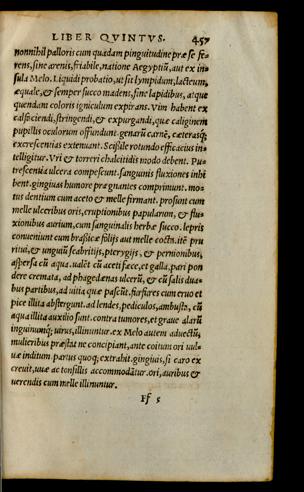 LIBER QVINTVS. 457
nonnihil palloris cum quadam pinguitudine præ se fe-
rens, sine arenis, friabile, natione Aegyptiũ, aut ex in-
sula Melo. Liquidi probatio, ut sit lympidum, lacteum,
æquale, & semper succo madens, sine lapidibus, atque
quendam coloris igniculum expirans. Vim habent ex
calfaciendi, stringendi, & expurgandi, quæ caliginem
pupillis oculorum offundunt. genarũ carnẽ, cæterasq;
excrescentias extenuant. Scissile rotundo efficacius in-
telligitur. Vri & torreri chalcitidis modo debent. Pu-
trescentia ulcera compescunt. sanguinis fluxiones inhi
bent. gingiuas humore prægnantes comprimunt. mo-
tus dentium cum aceto & melle firmant. prosunt cum
melle ulceribus oris, eruptionibus papularum, & flu-
xionibus aurium, cum sanguinalis herbæ succo. lepris
conueniunt cum brasicæ folijs aut melle coctis. itẽ pru
ritui, & unguiũ scabritijs, pterygijs, & pernionibus,
aspersa cũ aqua. ualẽt cũ aceti fæce, et galla, pari pon
dere cremata, ad phagedænas ulcerũ, & cũ salis dua-
bus partibus, ad uitia quæ pascũt. furfures cum eruo et
pice illita abstergunt. ad lendes, pediculos, ambusta, cũ
aqua illita auxilio sunt. contra tumores, et graue alarũ
inguinumq; uirus, illinuntur. ex Melo autem aduectũ,
mulieribus præstat ne concipiant, ante coitum ori uul-
uæ inditum partus quoq; extrahit. gingiuis, si caro ex
creuit, uuæ ac tonsillis accommodãtur. ori, auribus &
uerendis cum melle illinuntur.
Ff 5